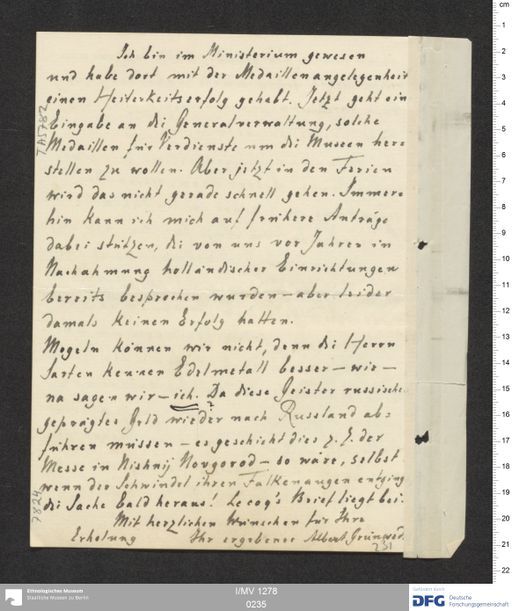 Ich bin im Ministerium gewesen
und habe dort mit der Medaillenangelegenheit
einen Heiterkeitserfolg gehabt. Jetzt geht ein
Eingabe an die Generalverwaltung, solche
Medaillen für Verdienste um die Museen her=
stellen zu wollen. Aber jetzt in den Ferien
wird das nicht gerade schnell gehen. Immer=
hin kann ich mich auf frühere Anträge
dabei stützen, die von uns vor Jahren in
Nachahmung holländischer Einrichtungen
bereits besprochen wurden – aber leider
damals keinen Erfolg hatten.
Mogeln können wir nicht, denn die Herrn
Sarten kennen Edelmetall besser – wie –
na sagen wir – ich. Da diese Geister russisches
geprägtes Geld wieder nach Russland ab=
führen müssen – es geschieht dies z. Z. der
Messe in Nishnij Novgorod – so wäre, selbst
wenn der Schwindel ihren Falkenaugen entging
die Sache bald heraus! Lecoq's Brief liegt bei.
Mit herzlichen Wünschen für Ihre
Erholung Ihr ergebener Albert Grünwedel
231
TA5782
7824
Ethnologisches Museum
Staatliche Museen zu Berlin
I/MV 1278
0235
DFG Deutsche
Forschungsgemeinschaft
cm
1
2
3
4
5
6
7
8
9
10
11
12
13
14
15
16
17
18
19
20
21
22